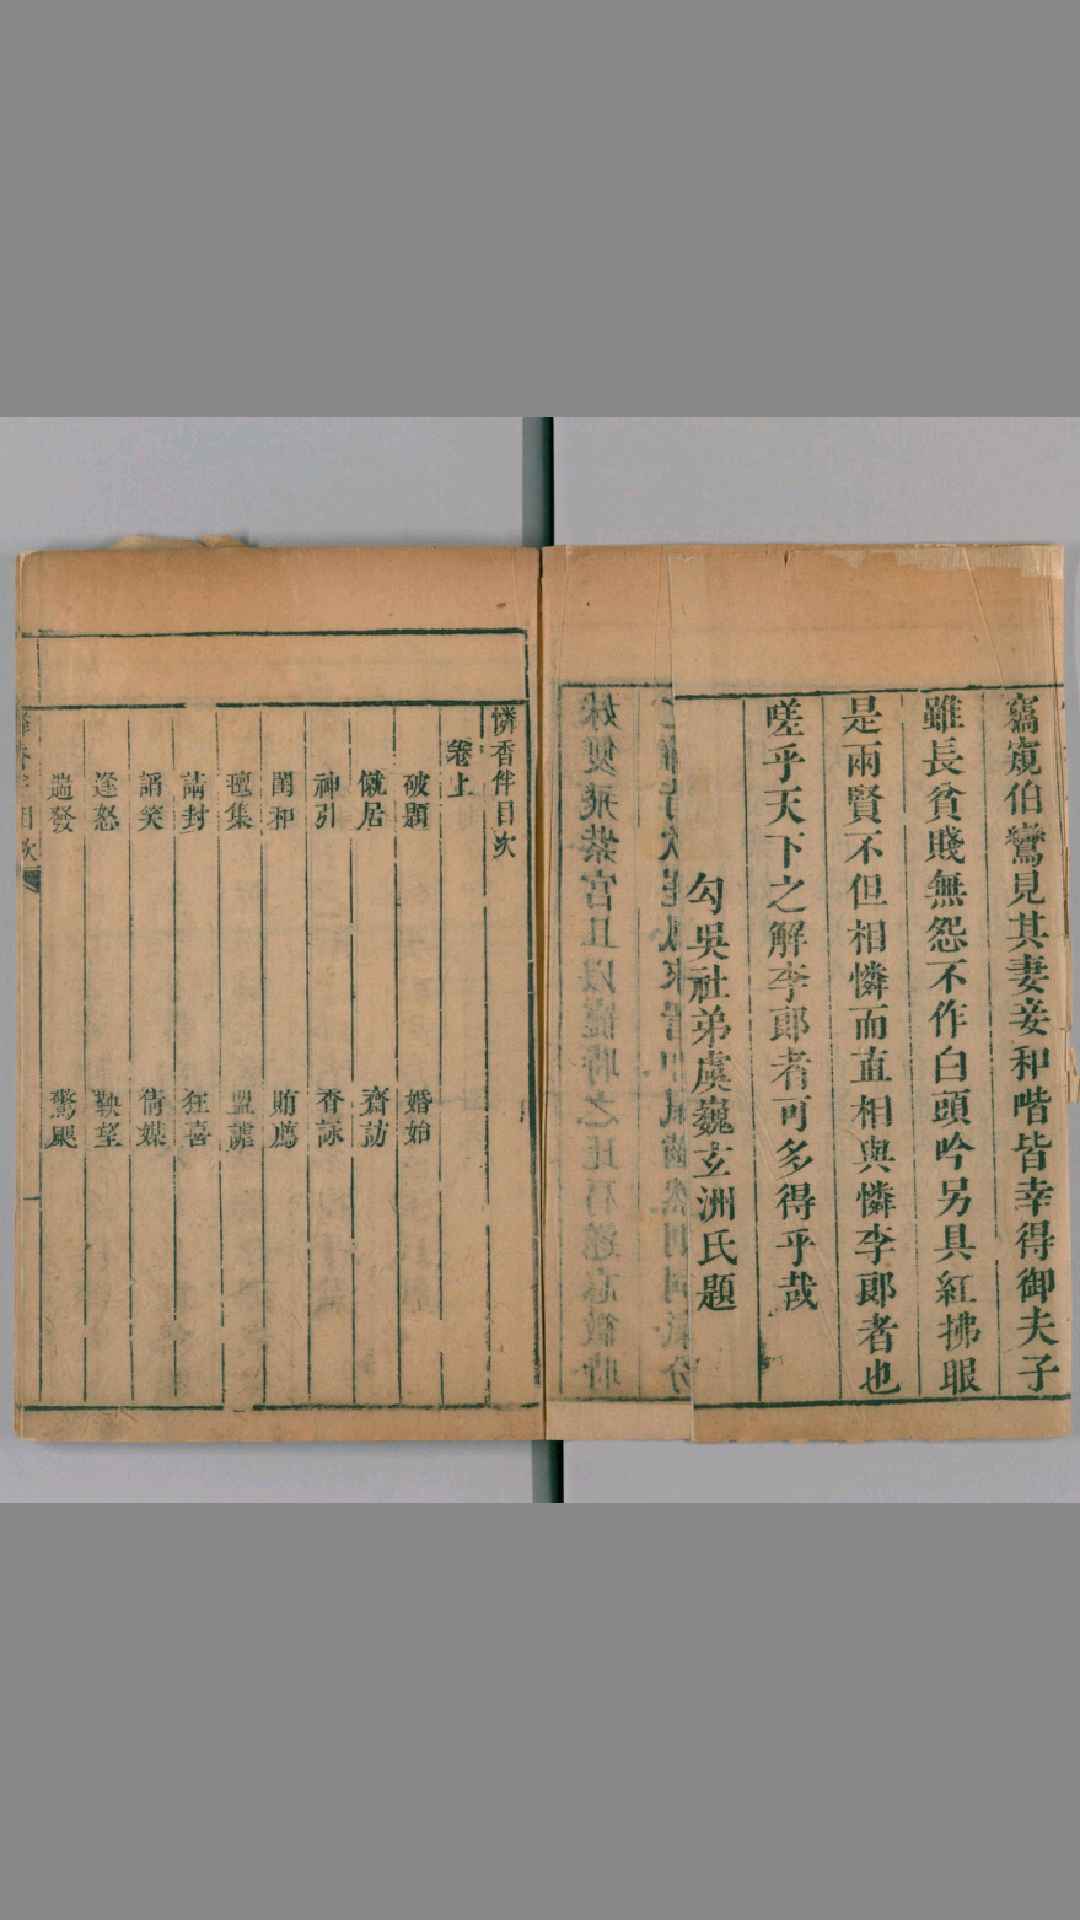 竊窺伯鸞見其妻妾和喈皆幸得御夫子
雖長貧賤無怨不作白頭吟另具紅拂眼
是兩賢不但相憐而直相與憐李郎者也
嗟乎天下之解李郎者可多得乎哉
勾吳社弟虞巍玄洲氏題
憐香伴目次
卷上
破題 婚始
僦居 齋訪
神引 香詠
閨和 賄薦
氊集 盟謔
請封 狂喜
誚笑 倩媒
逢怒 鞅望
遄發 驚颶